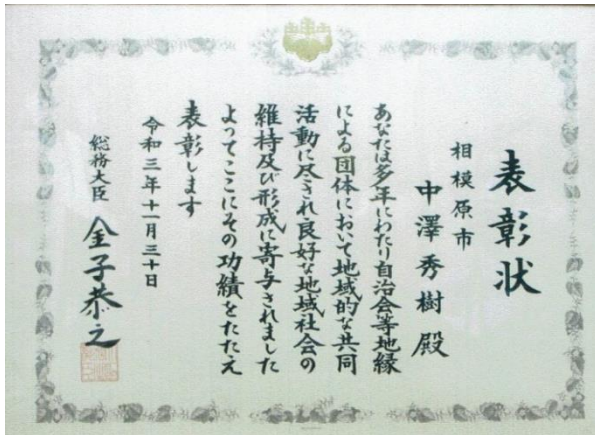 表彰状
相模原市
中澤秀樹殿
あなたは多年にわたり自治会等地縁
による団体において地域的な共同
活動に尽され良好な地域社会の
維持及び形成に寄与されました
よってここにその功績をたたえ
表彰します
令和三年十一月三十日
総務大臣 金子恭之